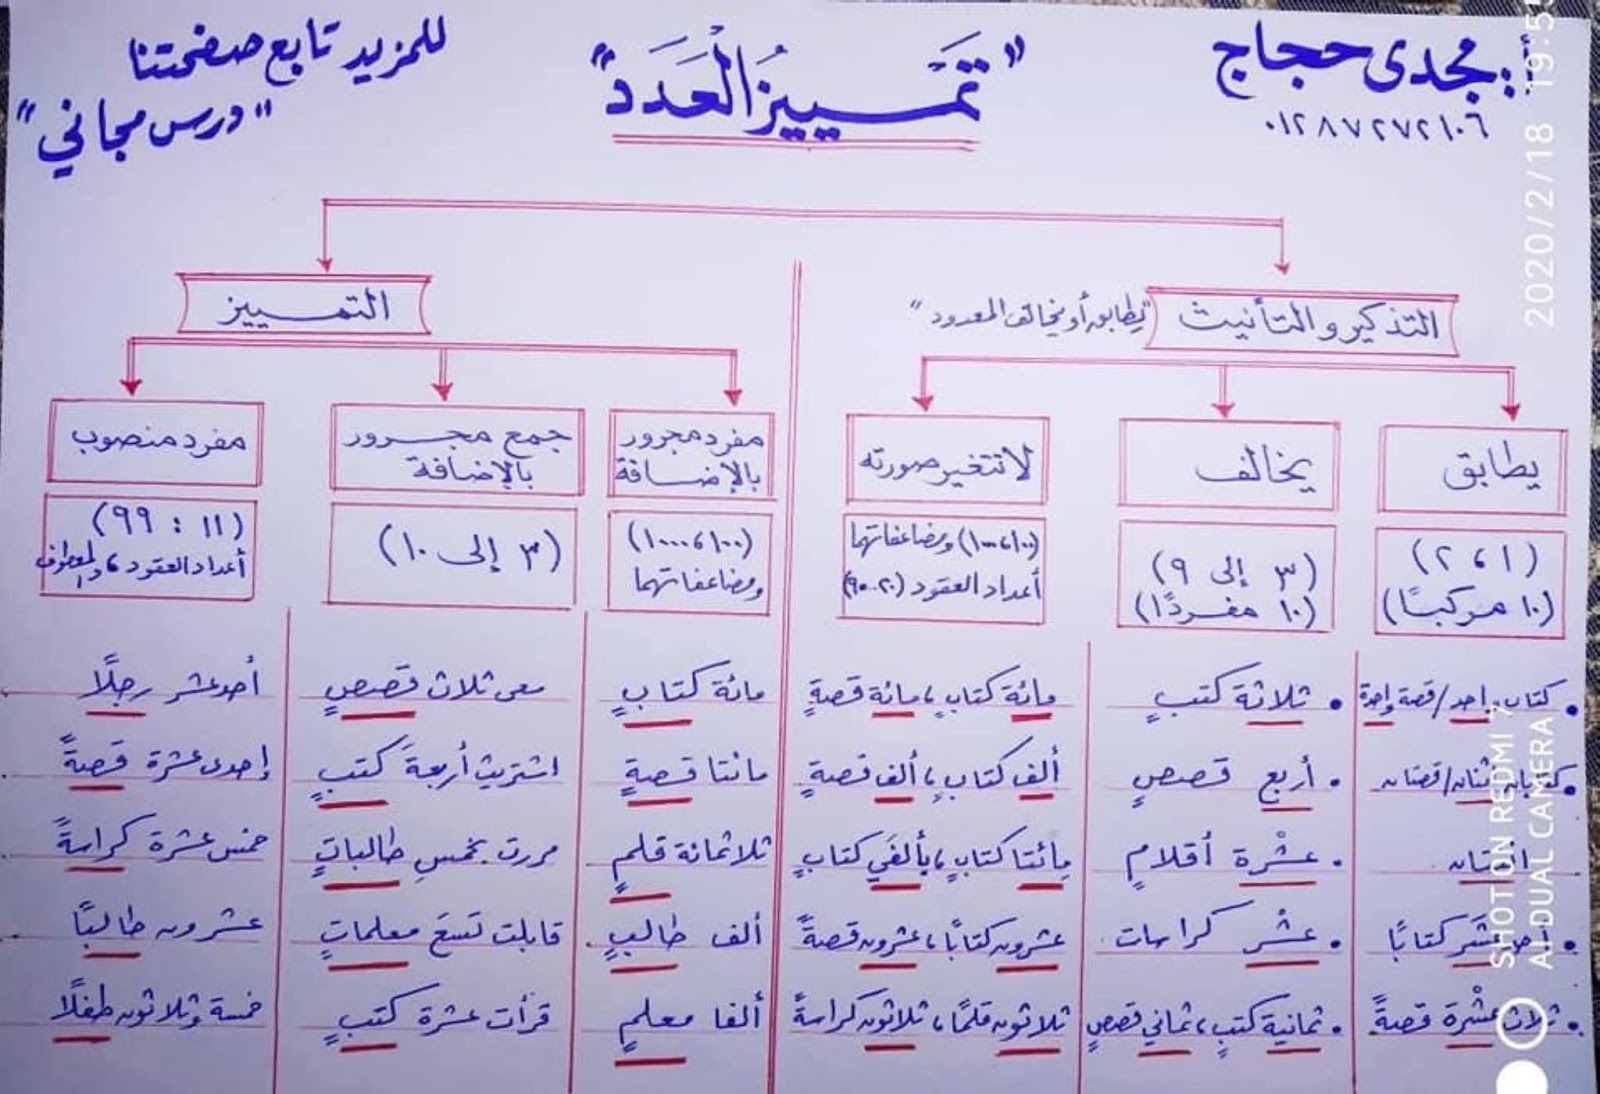 أ. مجدى حجاج
٠١٢٨٧٢٧٢١٠٦
"تمييز العدد"
للمزيد تابع صفحتنا
"درس مجاني"
التذكير والتأنيث "يطابق أو يخالف المعدود"
يطابق
(١ ، ٢)
(١٠ مركبًا)
كتاب واحد / قصة واحدة
كتابان اثنان / قصتان
اثنتان
أحد عشَر كتابًا
ثلاث عشْرة قصةً
يخالف
(٣ إلى ٩)
(١٠ مفردًا)
ثلاثة كتبٍ
أربع قصصٍ
عشْرة أقلامٍ
عشْر كراسات
ثمانية كتبٍ ، ثماني قصصٍ
لا تتغير صورته
(١٠٠ ، ١٠٠٠) ومضاعفاتهما
أعداد العقود (٢٠-٩٠)
مائة كتابٍ ، مائة قصةٍ
ألف كتابٍ ، ألف قصةٍ
مائتا كتابٍ ، بألفَي كتابٍ
عشرون كتابًا ، عشرون قصةً
ثلاثون قلمًا ، ثلاثون كراسةً
التمييز
مفرد مجرور
بالإضافة
(١٠٠ ، ١٠٠٠)
ومضاعفاتهما
مائة كتابٍ
مائتا قصةٍ
ثلاثمائة قلمٍ
ألف طالبٍ
ألفا معلمٍ
جمع مجرور
بالإضافة
(٣ إلى ١٠)
معى ثلاث قصصٍ
اشتريت أربعةَ كتبٍ
مررت بخمسِ طالباتٍ
قابلت تسعَ معلماتٍ
قرأت عشرة كتبٍ
مفرد منصوب
(١١ : ٩٩)
أعداد العقود ، والمعطوف
أحد عشر رجلًا
إحدى عشرة قصةً
خمس عشرة كراسةً
عشرون طالبًا
خمسة وثلاثون طفلًا
2020/2/18 19:55
SHOT ON REDMI 7
AI DUAL CAMERA